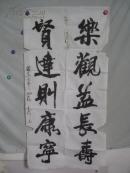 樂觀益長壽
賢達則康寧